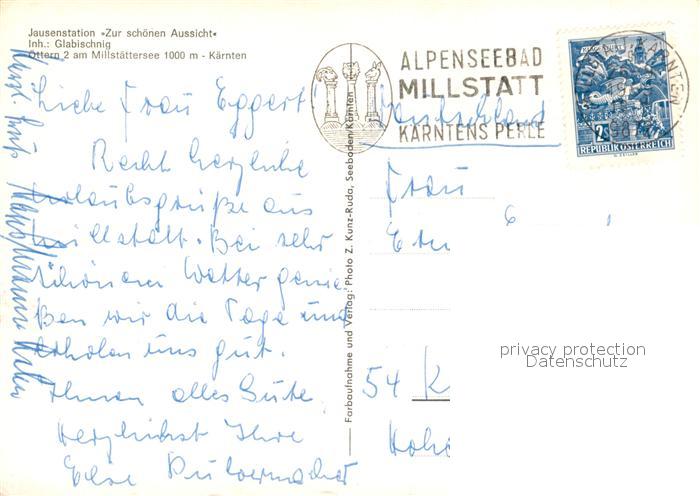 Jausenstation »Zur schönen Aussicht«
Inh.: Glabischnig
Ottern 2 am Millstättersee 1000 m - Kärnten
Liebe Frau Eggert!
Recht herzliche
Urlaubsgrüße aus
Millstatt. Bei sehr
schönem Wetter genie
ßen wir die Tage und
erholen uns gut.
Ihnen alles Gute
Herzlichst Ihre
Else
Farbaufnahme und Verlag: Photo Z. Kunz-Ruda, Seeboden/Kärnten
ALPENSEEBAD
MILLSTATT
KÄRNTENS PERLE
Deutschland
REPUBLIK ÖSTERREICH
Frau
54 K
privacy protection
Datenschutz